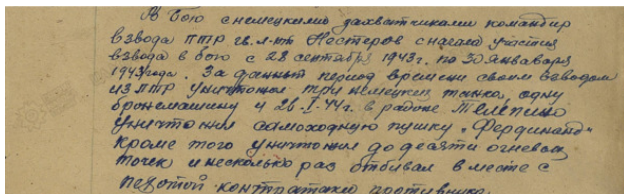 В бою с немецкими захватчиками командир
взвода ПТР гв. л-нт Нестеров с начала участия
взвода в бою с 28 сентября 1943г. по 30 января
1943 года. За данный период времени своим взводом
из ПТР уничтожил три немецких танка, одну
бронемашину и 26.I-44г. в районе Телепино
уничтожил самоходную пушку "Фердинанд"
кроме того уничтожил до десяти огневых
точек и несколько раз отбивал вместе с
пехотой контратаки противника.